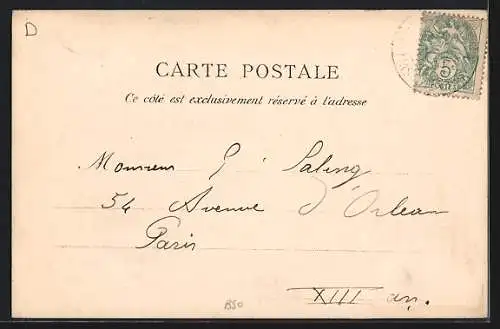 D
5
CARTE POSTALE
Ce côté est exclusivement réservé à l'adresse
Monsieur G. Saling
54 Avenue d'Orléan
Paris
XIII arr.
B50